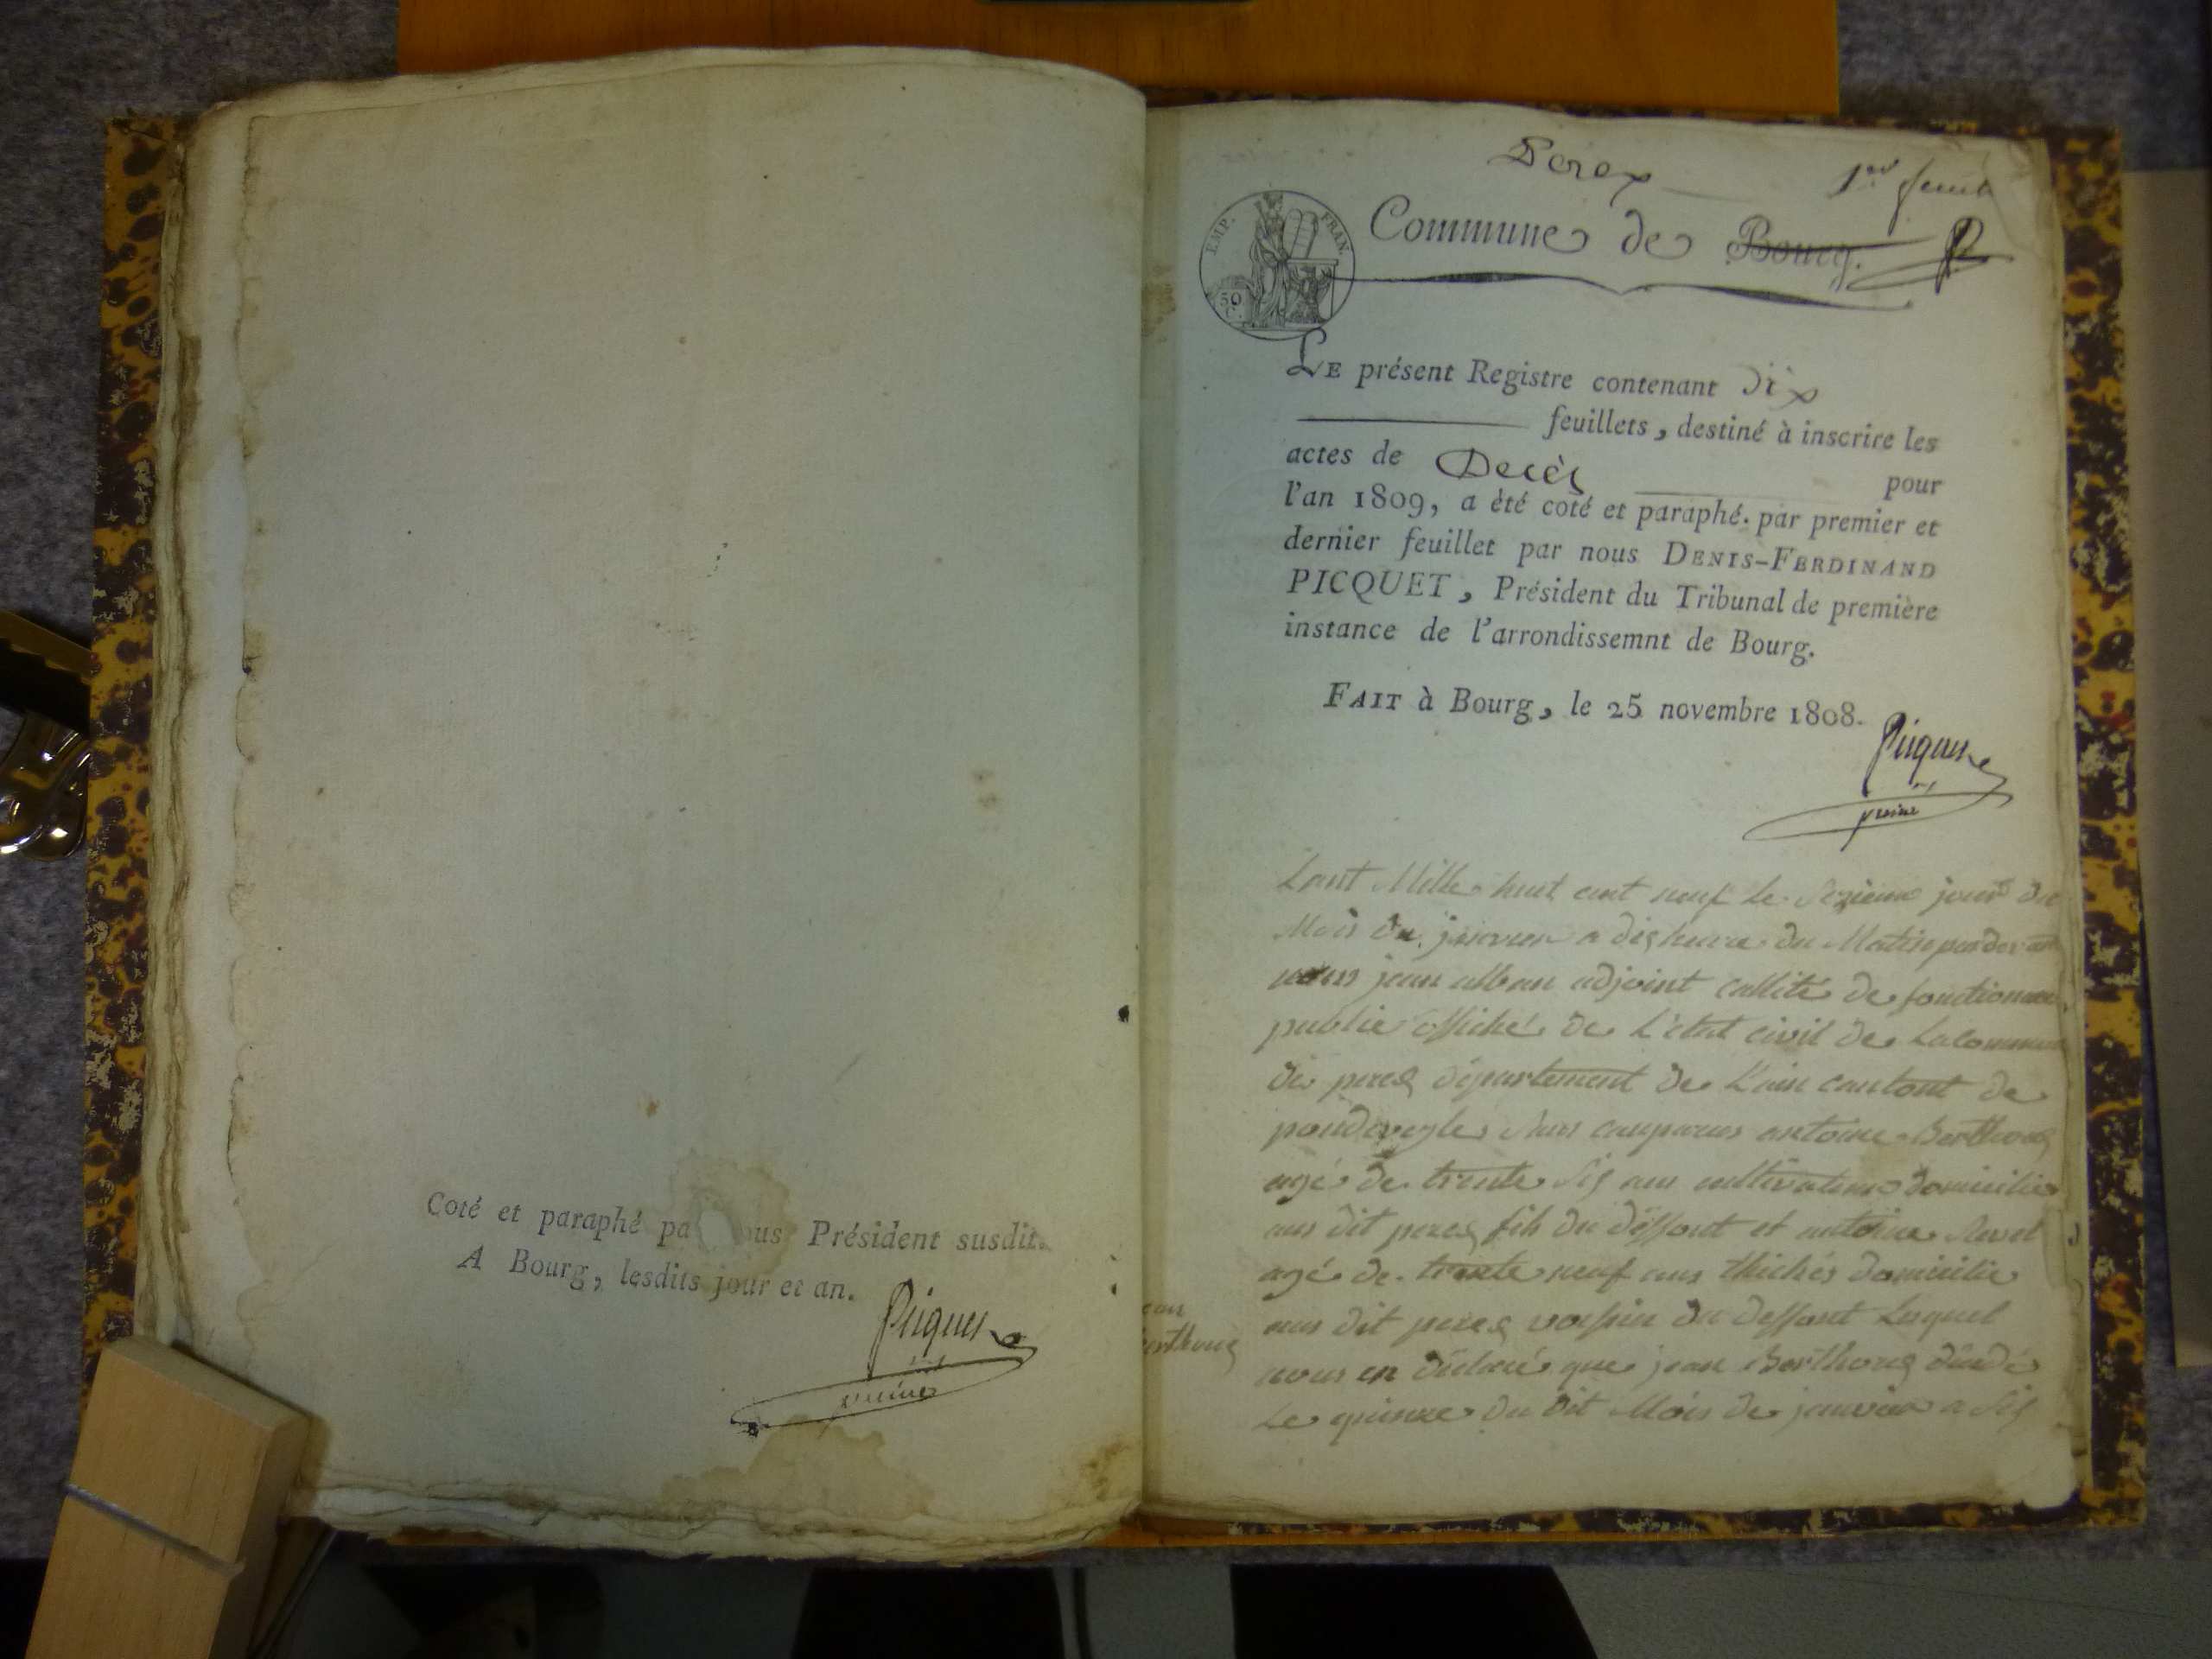 Coté et paraphé pa ous Président susdit.
A Bourg, lesdits jour et an.
Picquet
Perex
1er feuil
EMP. FRAN.
50 C.
Commune de Bourg.
LE présent Registre contenant dix
feuillets, destiné à inscrire les
actes de Decès pour
l'an 1809, a été coté et paraphé. par premier et
dernier feuillet par nous DENIS-FERDINAND
PICQUET, Président du Tribunal de première
instance de l'arrondissemnt de Bourg.
FAIT à Bourg, le 25 novembre 1808.
Picquet
Lant Mille huit cent neuf le sezieme jour du
Mois de janvier a dis heure du Matin par devant
nous jean alban adjoint callité de fonctionnaire
public officié de L'etat civil de Lacommune
de perex département de L'ain cantont de
pondeveyle sont comparus antoine Berthoux
agé de trente six ans cultivateur domicilié
aus dit perex fils du deffont et antoine
agé de trente neuf ans domicilié
aus dit perex voisin du deffont Lequel
nous en déclaré que jean Berthoux
Le quinze du dit Mois de janvier a six
ean
erthoux